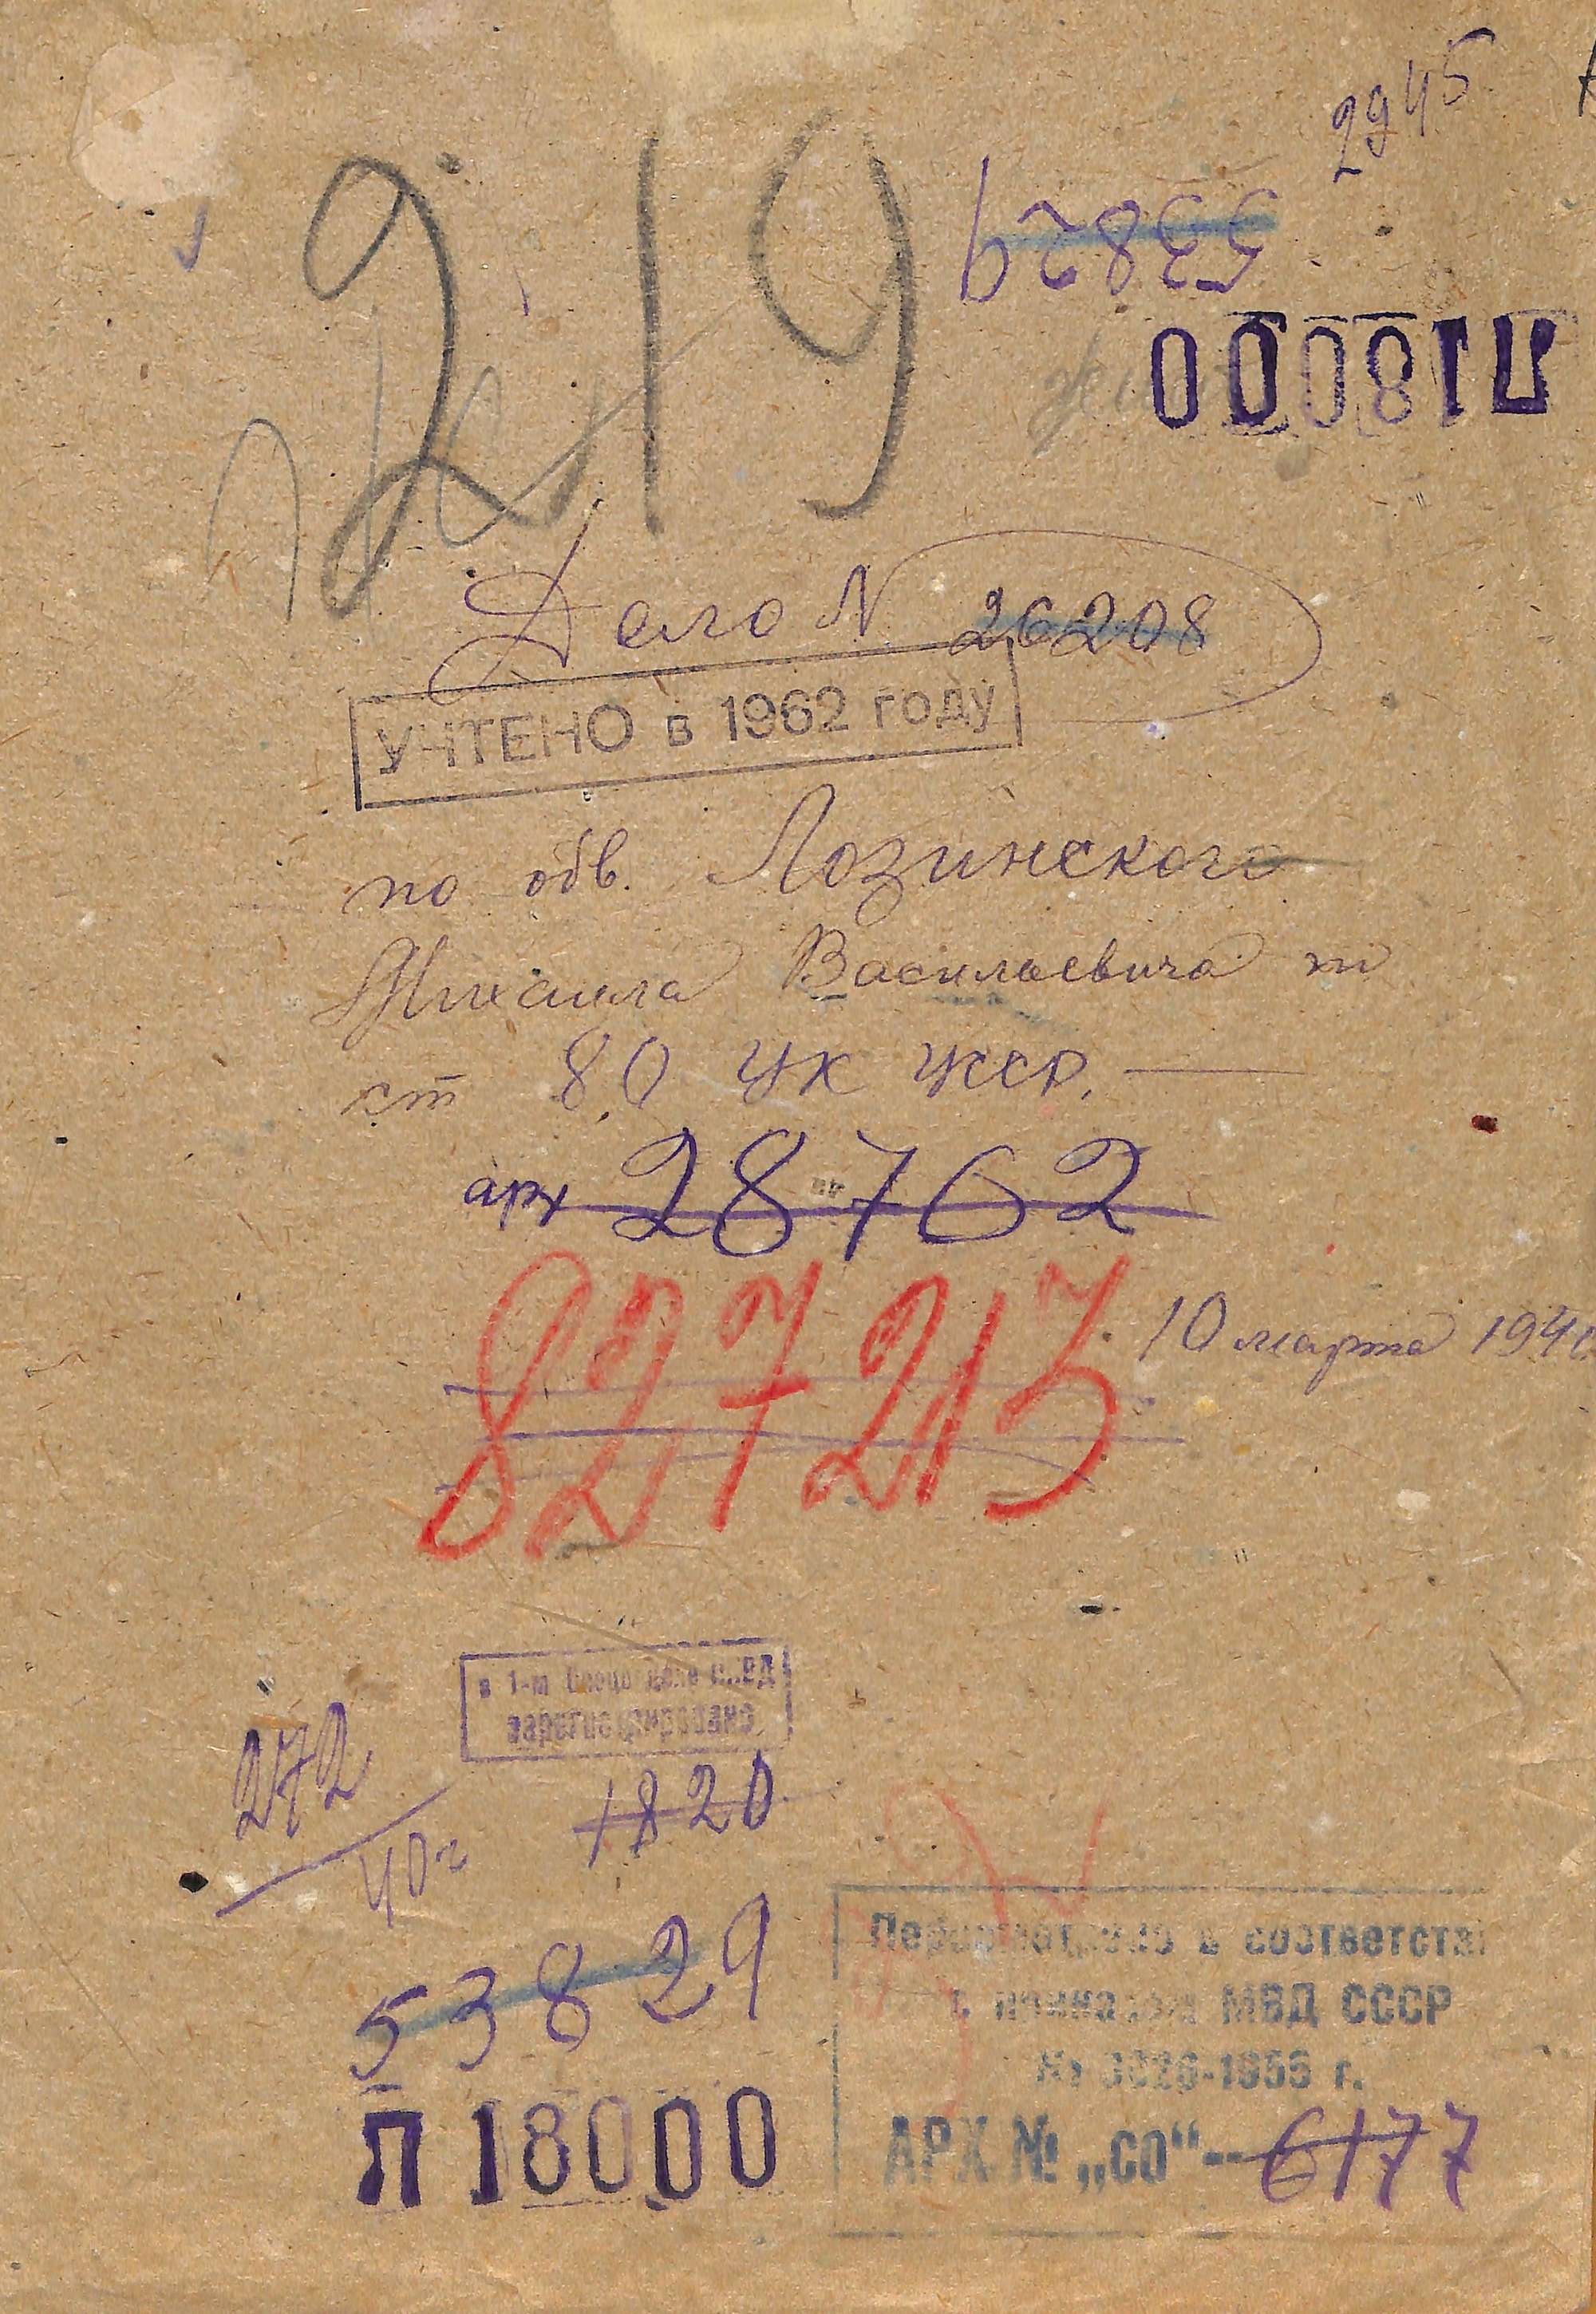 2945
219
53829
П18000
Дело N 26208
УЧТЕНО в 1962 году
по обв. Лозинского
Михаила Васильевича по
ст 80 УК УССР.
арх 28762
82721
10 марта 194
в 1-м
зарегистрировано
272
40г
1820
53829
П 18000
Пересмотрено в соответстви
с приказом МВД СССР
АРХ № „СО“ -- 6177